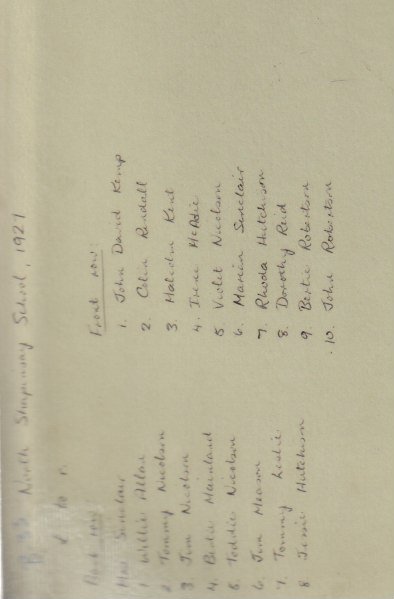 P. 33 North Shapinsay School, 1927
L to r.
Back row:
Mrs Sinclair
1 Willie Allan
2 Tommy Nicolson
3 Jim Nicolson
4 Bertie Mainland
5. Toddie Nicolson
6. Jim Meason
7. Tommy Leslie
8 Jessie Hutchison
Front row:
1. John David Kemp
2. Colin Rendall
3 Malcolm Kent
4. Irene McAdie
5 Violet Nicolson
6. Marion Sinclair
7. Rhoda Hutchison
8 Dorothy Reid
9. Bertie Robertson
10. John Robertson